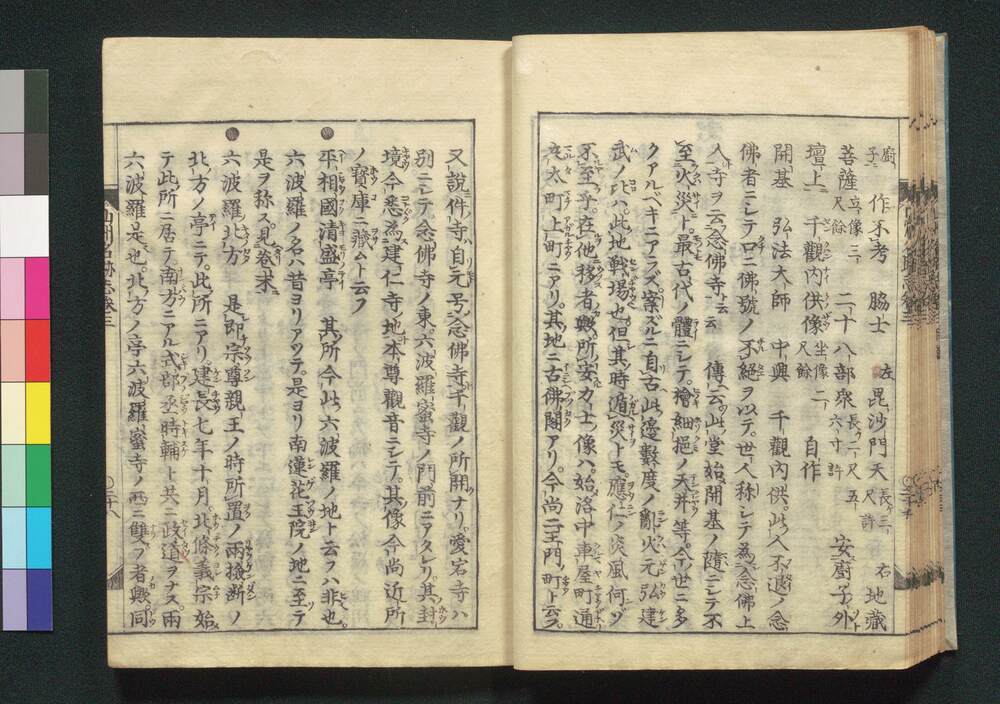 厨子ニ 作不考 脇士 左 毘沙門天 長三尺許 右 地藏
菩薩 立像三尺餘 二十八部衆 長二尺五六寸許 安廚子外
壇上 千觀内供像 坐像二尺餘 自作
開基 弘法大師 中興 千觀内供此人不退ノ念
佛者ニシテ口ニ佛號ノ不絶ヲ以テ世人称シテ為念佛上
人寺ヲ云念佛寺云云 傳云此堂始開基ノ隨ニシテ不
至火災ト最古代ノ體ニシテ檜細挹ノ天井等今世ニ多
クアルベキニアラズ案ズルニ自古此邊數度ノ亂火元弘建
武ノ比ハ此地戦場也但其時遁災トモ應仁ノ炎風何ゾ
不至乎在他移者歟所安力士像ハ始洛中車屋町通
夷太町上町ニアリ其地ニ古佛閣アリ今尚二王門町ト云フ
又説件寺自元号念佛寺千觀ノ所開ナリ愛宕寺ハ
別ニシテ念佛寺ノ東六波羅蜜寺ノ門前ニアタレリ其封
境今悉為建仁寺地本尊觀音ニシテ其像今尚近所
ノ寶庫ニ藏ムト云フ
●平相國清盛亭 其所今此六波羅ノ地ト云フハ非也
六波羅ノ名ハ昔ヨリアツテ是ヨリ南蓮花王院ノ地ニ至テ
是ヲ称ス見巻末
●六波羅北方 是即宗尊親王ノ時所置ノ兩撿断ノ
北方ノ亭ニテ此所ニアリ建長七年十月北條義宗始
テ此所ニ居テ南方ニアル式部丞時輔ト共ニ政道ヲナス兩
六波羅是也北方ノ亭六波羅蜜寺ノ西ニ雙ブ者歟同